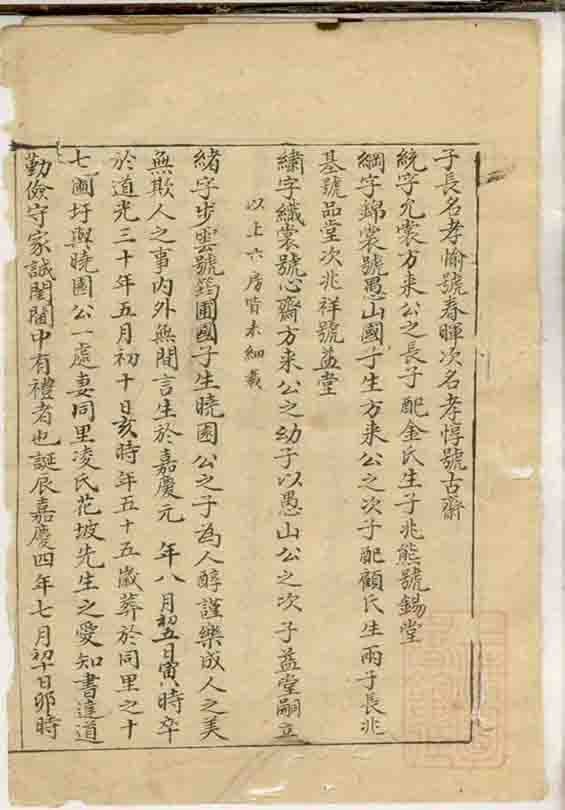 子長名孝愉號春暉次名孝惇號古齋
統字允裳方来公之長子配金氏生子兆熊號錫堂
綱字錦裳號愚山國子生方来公之次子配顧氏生兩子長兆
基號品堂次兆祥號益堂
繡字纖裳號心齋方来公之幼子以愚山公之次子益堂嗣立
以上六房皆未細載
緒字步雲號筠圃國子生曉園公之子為人醇謹樂成人之美
無欺人之事内外無間言生於嘉慶元年八月初五日寅時卒
於道光三十年五月初十日亥時年五十五歲葬於同里之十
七圖圩與曉園公一處妻同里凌氏花坡先生之愛知書達道
勤儉守家誠閨閫中有禮者也誕辰嘉慶四年七月初十日卯時